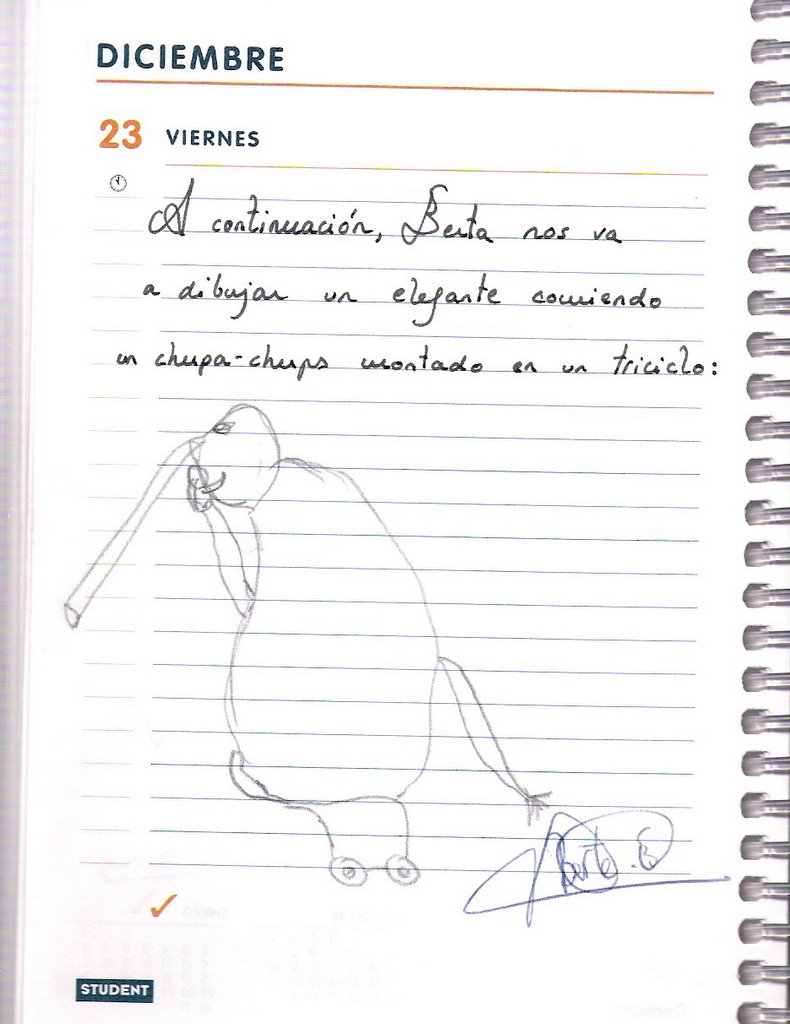 DICIEMBRE
23 VIERNES
A continuación, Berta nos va
a dibujar un elefante comiendo
un chupa-chups montado en un triciclo:
Berta.B
STUDENT